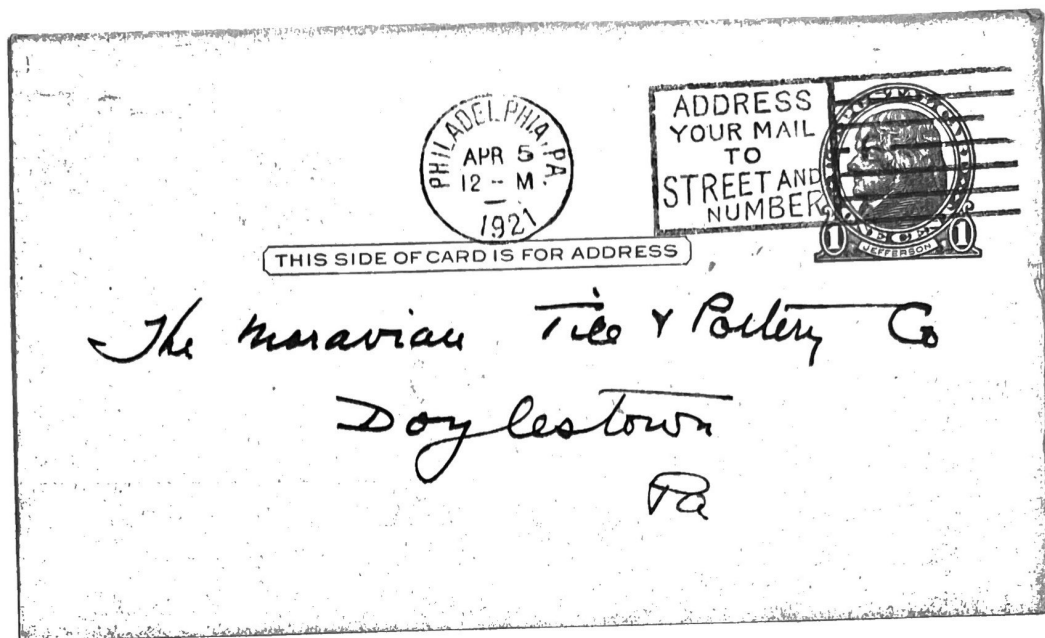 PHILADELPHIA, PA.
APR 5
12 - M
1921
ADDRESS
YOUR MAIL
TO
STREET AND
NUMBER
1 JEFFERSON 1
THIS SIDE OF CARD IS FOR ADDRESS
The Moravian Tile & Pottery Co
Doylestown
Pa